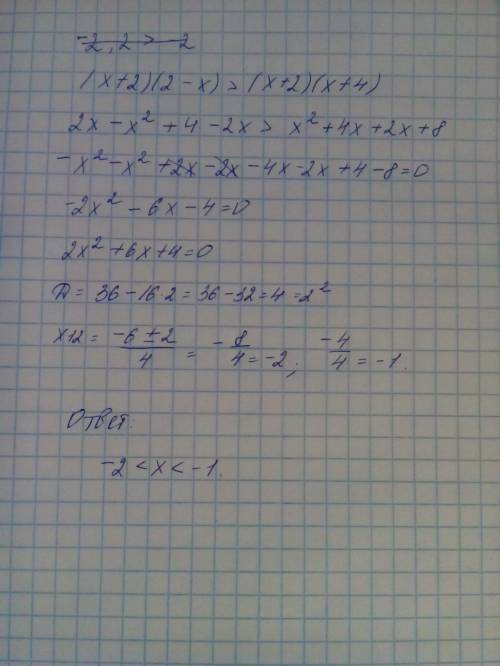 -2,2 > -2
(x+2)(2-x) > (x+2)(x+4)
2x - x² + 4 - 2x > x² + 4x + 2x + 8
-x² - x² + 2x - 2x - 4x - 2x + 4 - 8 = 0
-2x² - 6x - 4 = 0
2x² + 6x + 4 = 0
D = 36 - 16·2 = 36 - 32 = 4 = 2²
x12 = (-6 ± 2)/4 = -8/4 = -2; -4/4 = -1.
Ответ:
-2 < x < -1.